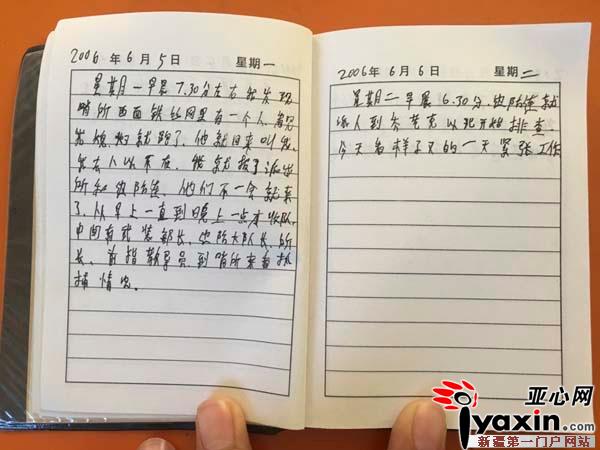 2006 年 6 月 5 日 星期 一
星期一早晨 7.30分左右 发现
哨所西面铁丝网里有一个人,看见
就跑了。他就回来叫我,
我去人以不在,我就报了派出
所和边防连,他们不一会就来
了,从早上一直到晚上一点才收队,
中间有武装部长、边防大队长、所
长、前指教导员到哨所来看抓
捕情况。
2006 年 6 月 6 日 星期 二
星期二早晨 6.30分,边防连就
派人到 以北开始排查,
今天看样子又的一天紧张工作
亚心网
iyaxin.com
新疆第一门户网站